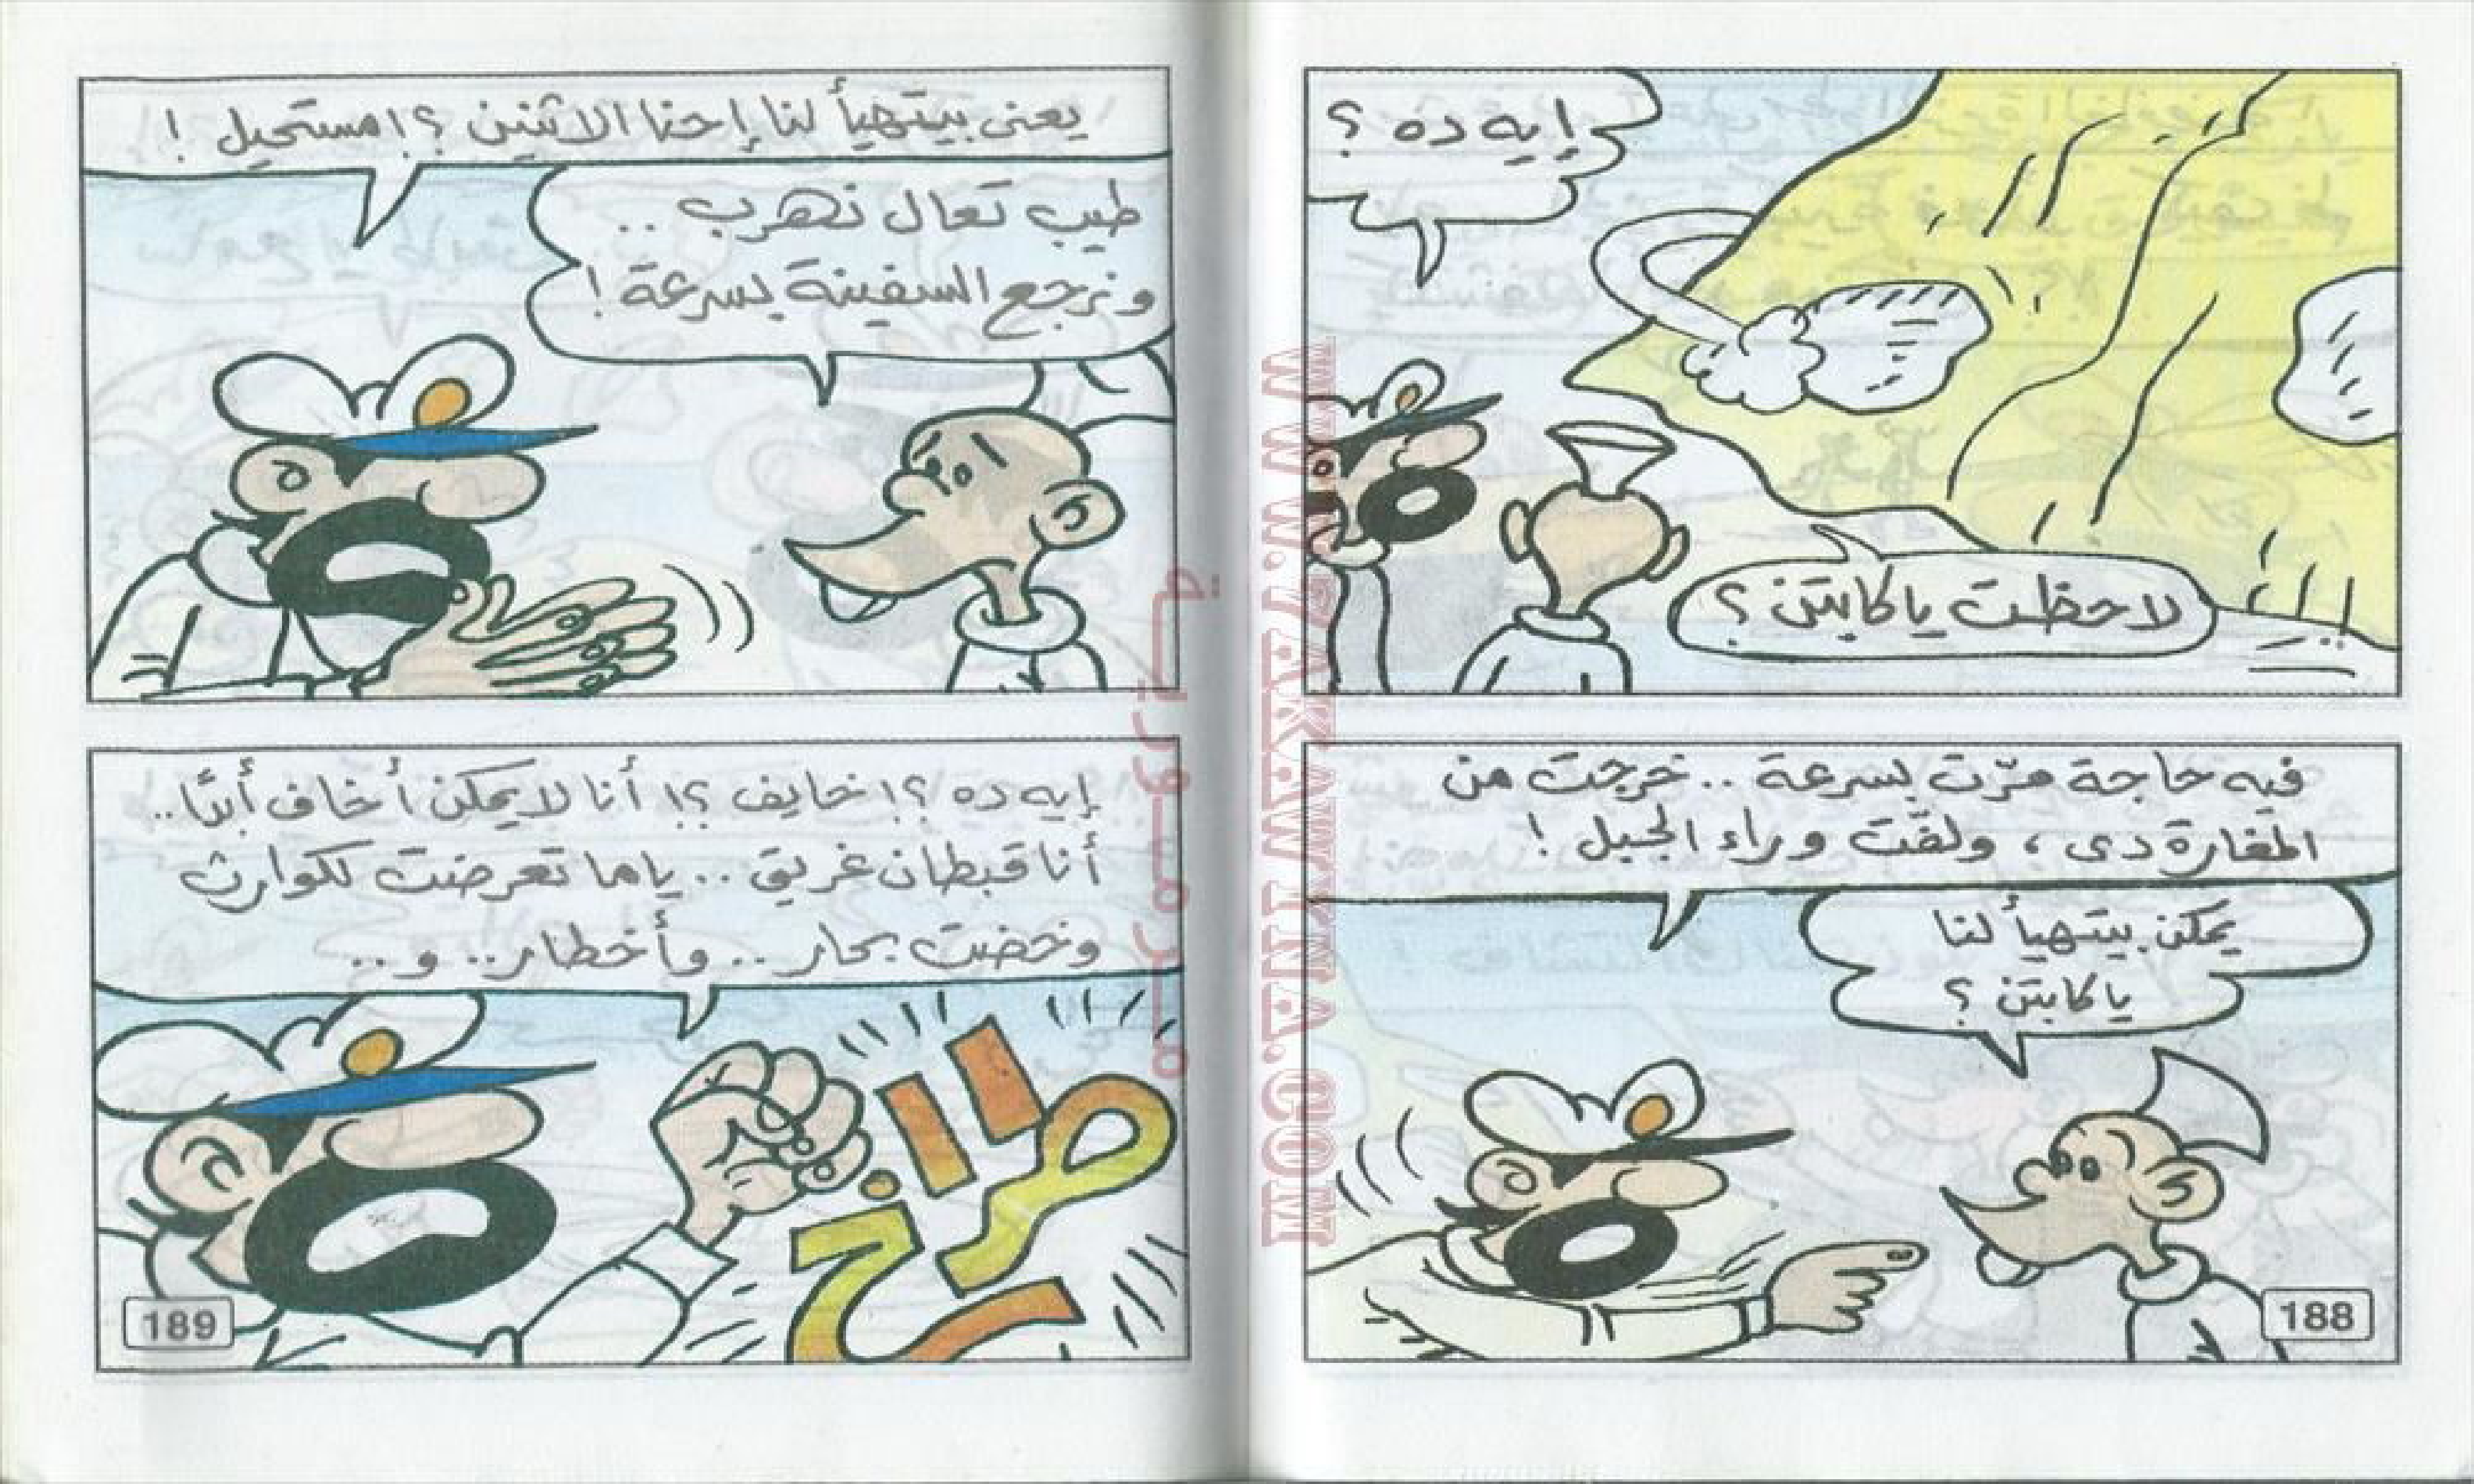 إيه ده ؟
لاحظت يا كابتن ؟
فيه حاجة مرّت بسرعة .. خرجت من
المغارة دى ، ولفّت وراء الجبل !
يمكن بيتهيأ لنا
يا كابتن ؟
188
يعنى بيتهيأ لنا إحنا الاتنين ؟! مستحيل !
طيب تعال نهرب ..
ونرجع السفينة بسرعة !
إيه ده ؟! خايف ؟! أنا لا يمكن أخاف أبدًا ..
أنا قبطان غريق .. ياما تعرضت لكوارث
وخضت بحار .. وأخطار .. و ..
طراااخ
189